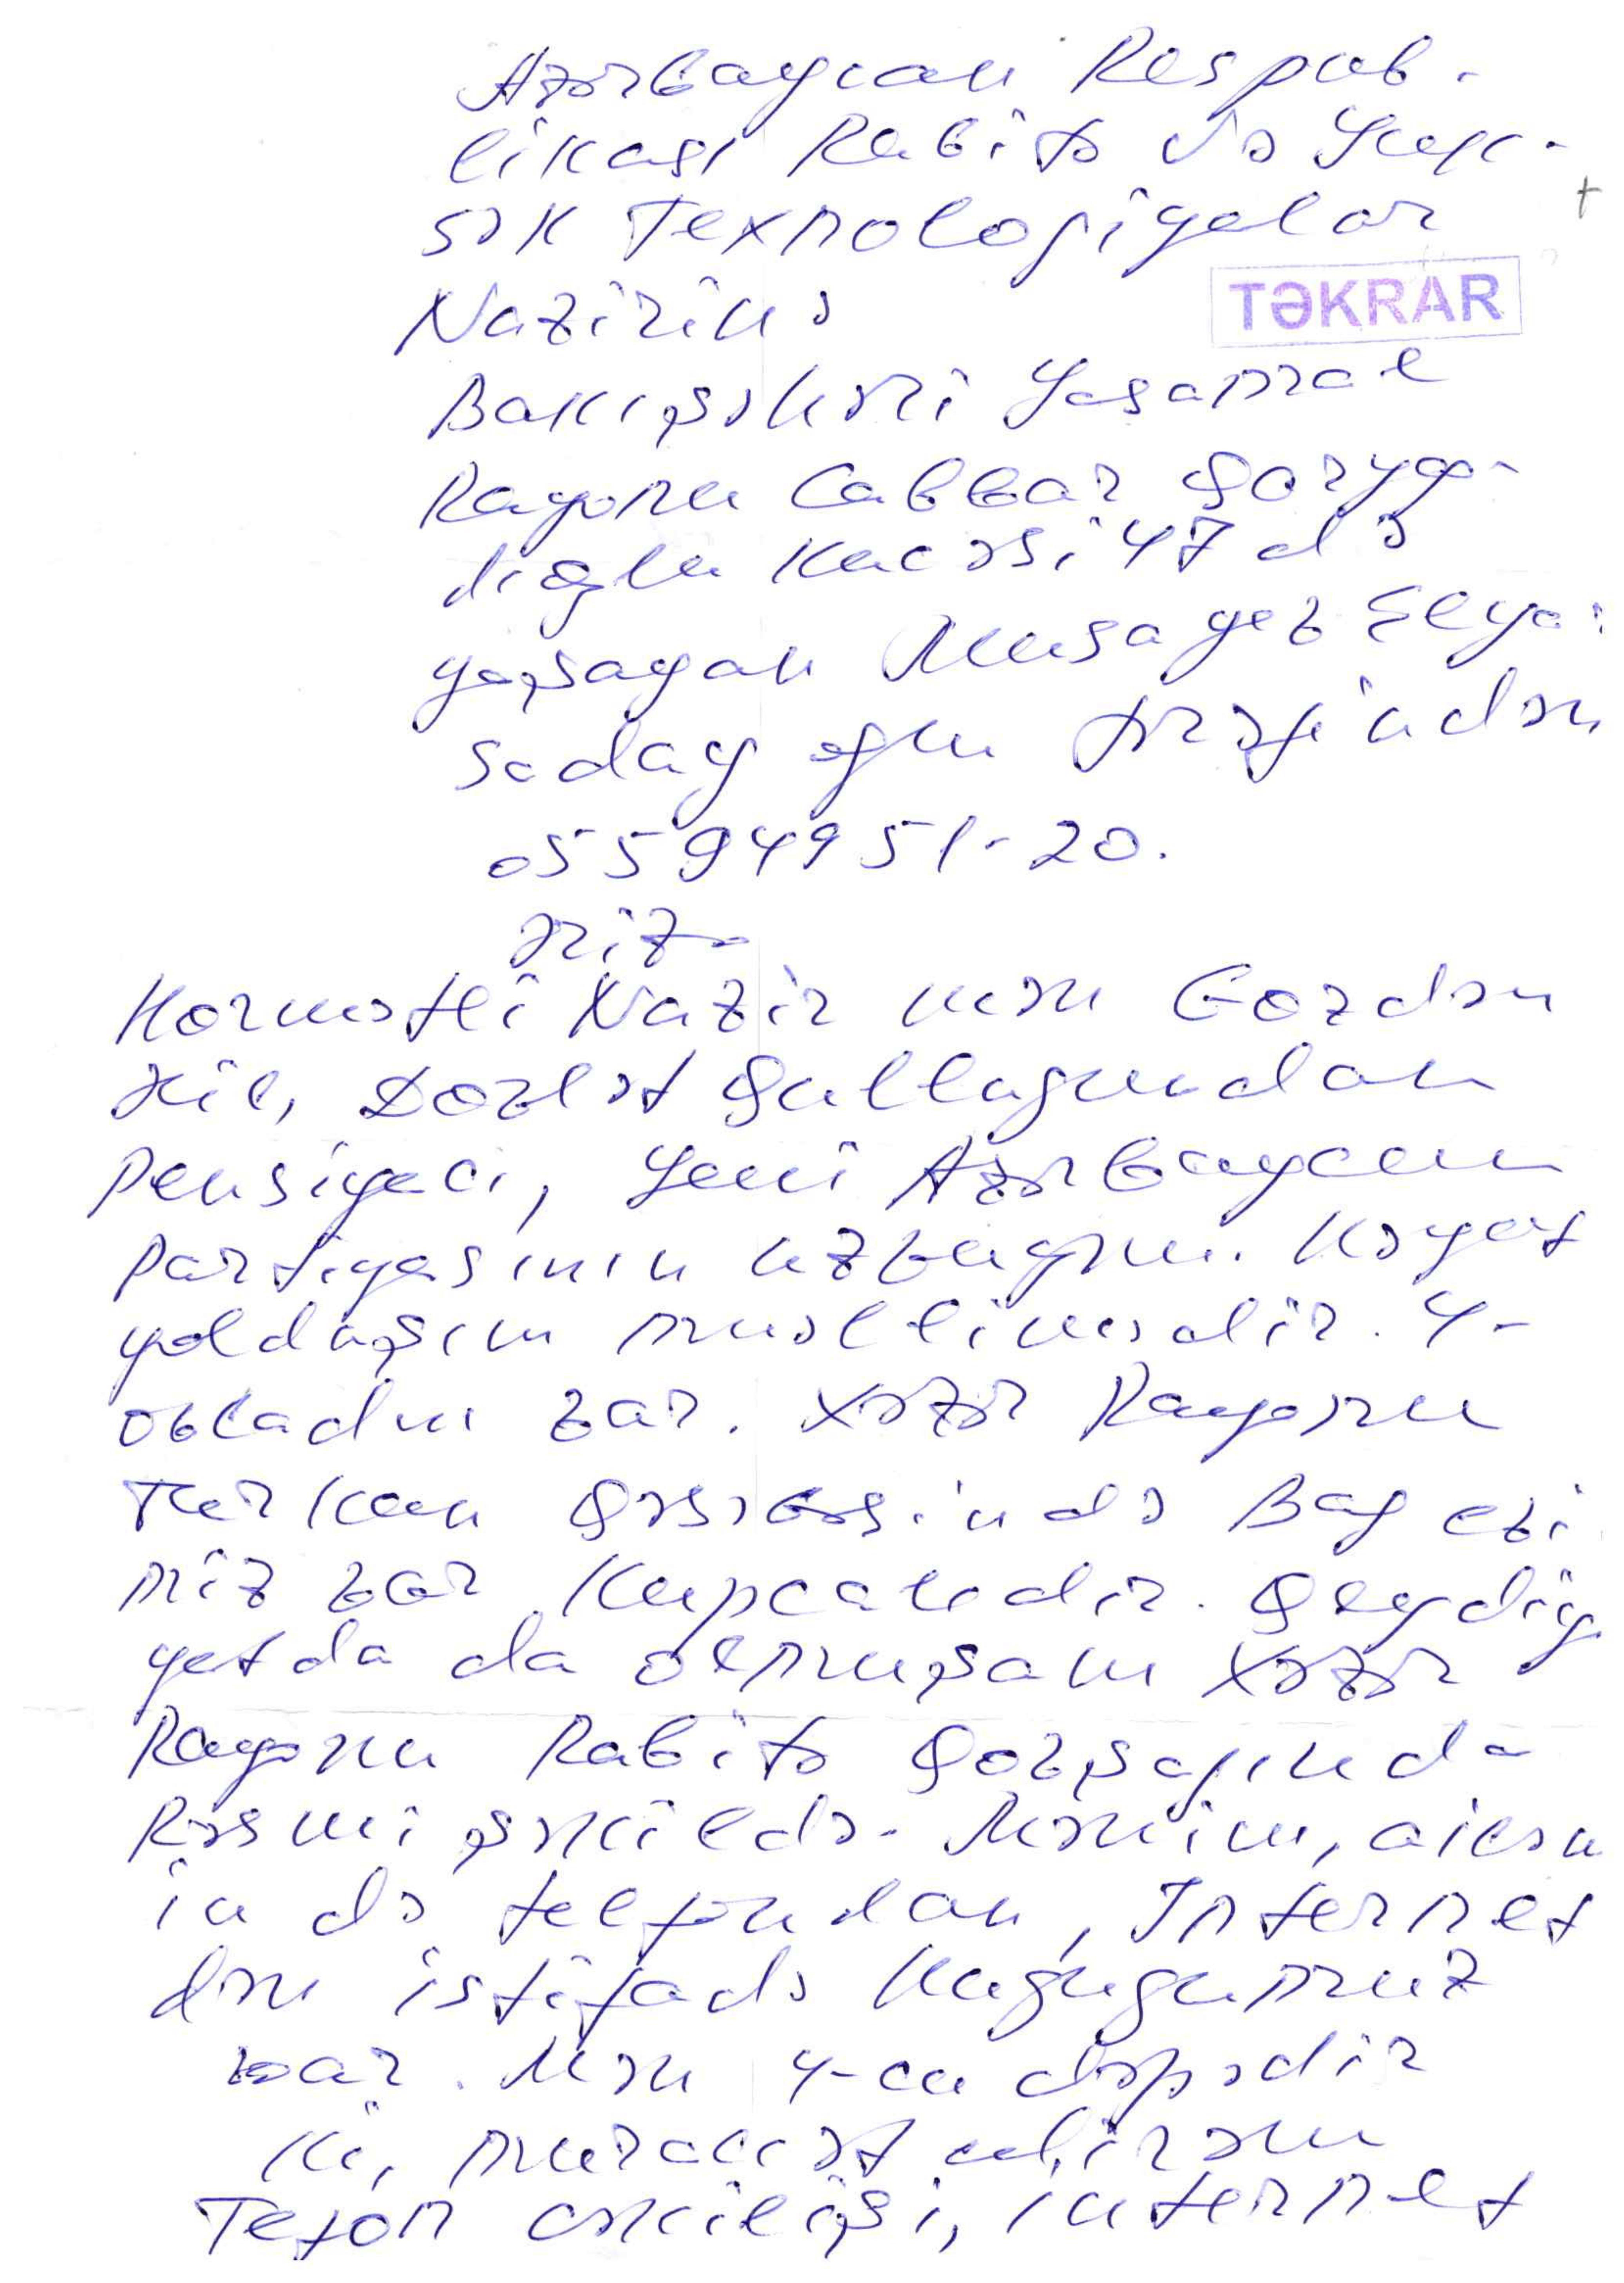 Azərbaycan Respub-
likası Rabitə və Yük-
sək Texnologiyalar
Nazirinə
TƏKRAR
Bakı şəhəri Yasamal
Rayonu Cabbar Qarya-
dıoğlu küçəsi 47 də
yaşayan Musayev Elya
Saday oğlu tərəfindən
055 949 51-20.
Əriz
Hörmətli Nazir mən Gözdən
əlil, Dövlət Qulluğundan
Pensiyaçı, Yeni Azərbaycan
Partiyasının üzvüyəm. Həyat
yoldaşım müəllimədir. 4-
övladım var. Xəzər Rayonu
Türkan Qəsəbəsində Bağ evi
miz var Kupçalıdır. Qeydiy
yatda da olmuşam Xəzər
Rayonu Rabitə Qovşağında
Rəsmi şəkildə. Mənim, ailəm
in də telfondan, İnternet
dən istifadə hüququmuz
var. Mən 4-cü dəfədir
ki, müraciət edirəm
Tefon çəkilişi, internet